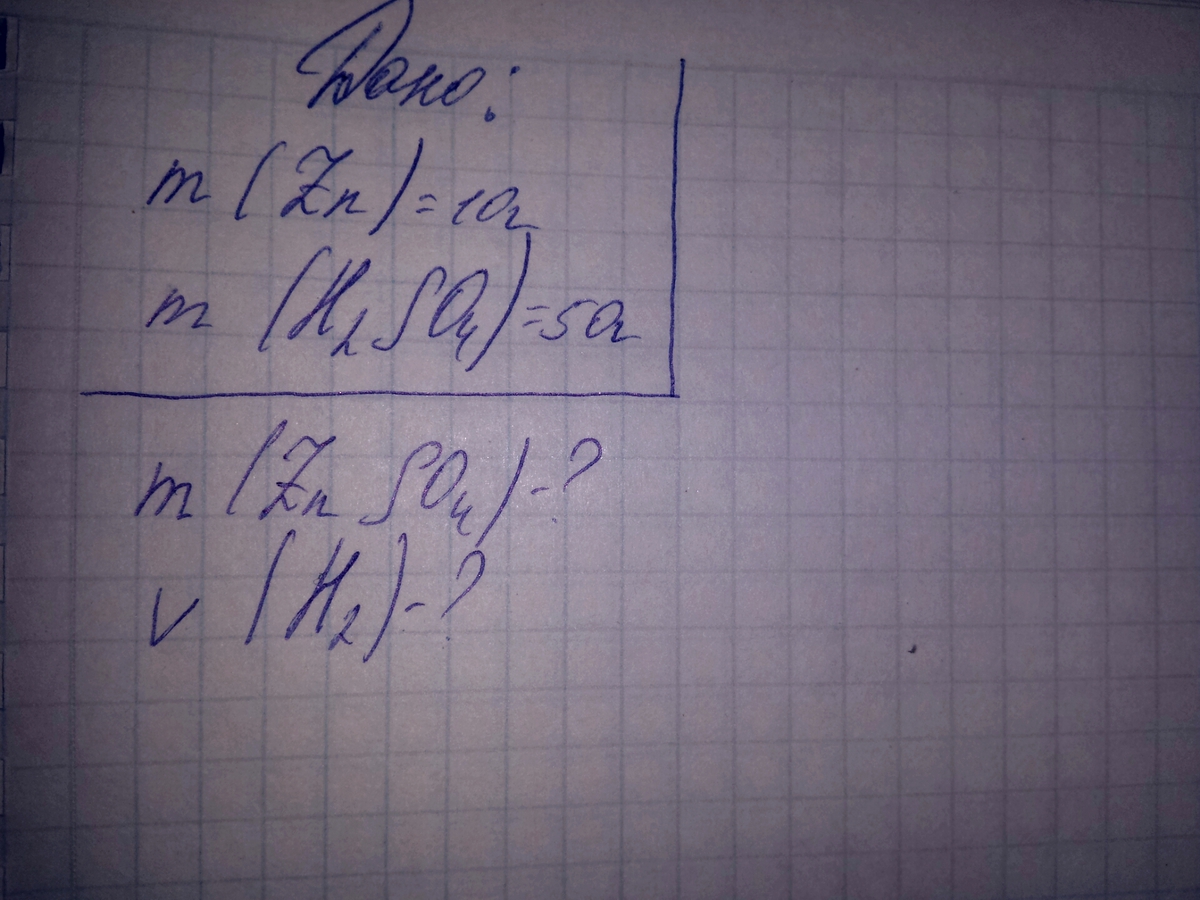 Дано:
m (Zn) = 10г
m (H₂SO₄) = 50г
m (ZnSO₄) - ?
V (H₂) - ?